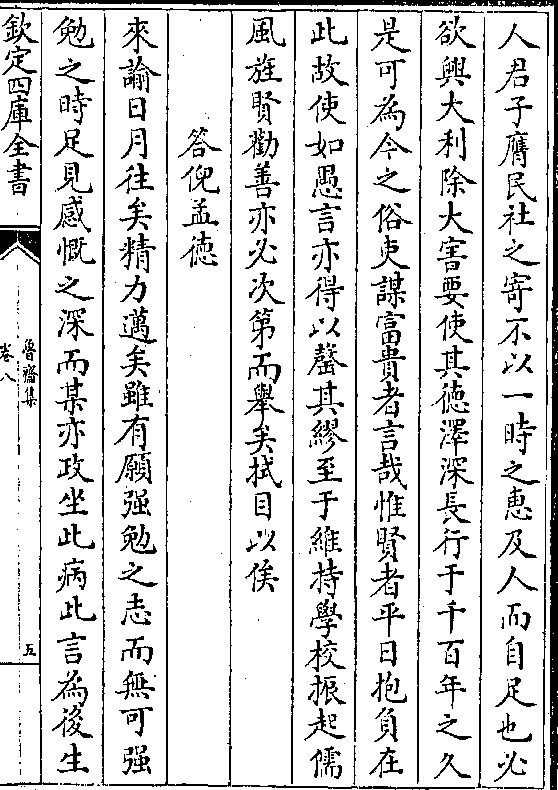 人君子膺民社之寄不以一時之恵及人而自足也必
欲興大利除大害要使其徳澤深長行于千百年之久
是可為今之俗吏謀富貴者言哉惟賢者平日抱負在
此故使如愚言亦得以罄其繆至于維持學校振起儒
風旌賢勸善亦必次第而舉矣拭目以俟
答倪孟徳
來諭日月往矣精力邁矣雖有願强勉之志而無可强
勉之時足見感慨之深而某亦政坐此病此言為後生
欽定四庫全書
魯齋集
卷八
五